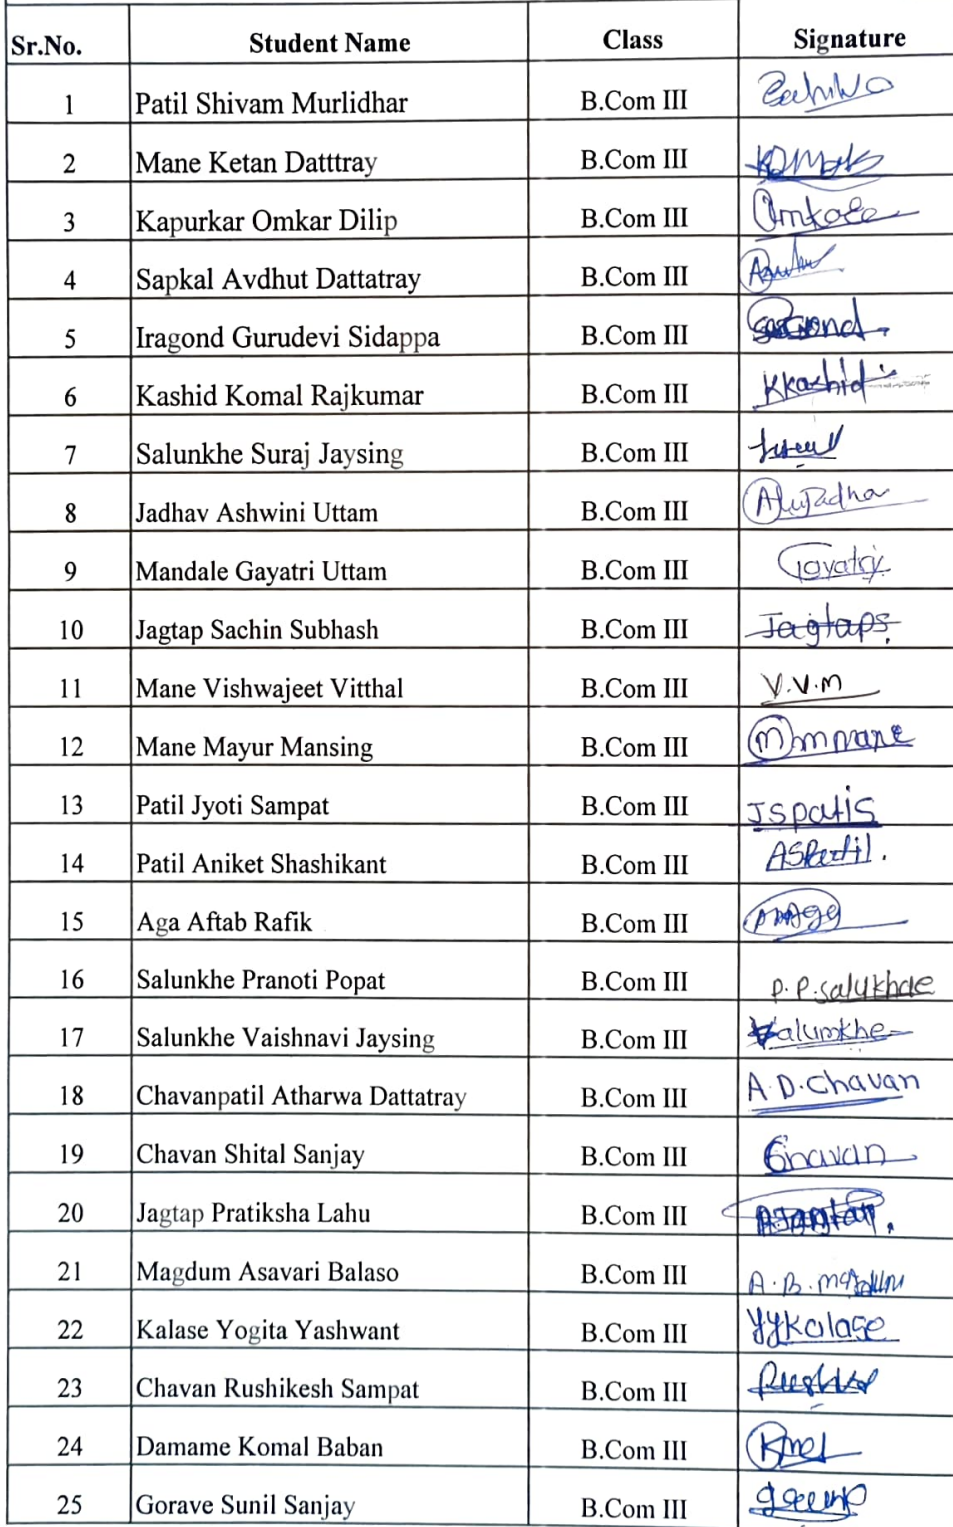 Sr.No. Student Name Class Signature
1 Patil Shivam Murlidhar B.Com III
2 Mane Ketan Datttray B.Com III
3 Kapurkar Omkar Dilip B.Com III Omkar
4 Sapkal Avdhut Dattatray B.Com III
5 Iragond Gurudevi Sidappa B.Com III
6 Kashid Komal Rajkumar B.Com III Kkashid
7 Salunkhe Suraj Jaysing B.Com III
8 Jadhav Ashwini Uttam B.Com III
9 Mandale Gayatri Uttam B.Com III Gayatri
10 Jagtap Sachin Subhash B.Com III Jagtaps
11 Mane Vishwajeet Vitthal B.Com III V.V.M
12 Mane Mayur Mansing B.Com III
13 Patil Jyoti Sampat B.Com III
14 Patil Aniket Shashikant B.Com III ASPatil.
15 Aga Aftab Rafik B.Com III
16 Salunkhe Pranoti Popat B.Com III P.P.
17 Salunkhe Vaishnavi Jaysing B.Com III
18 Chavanpatil Atharwa Dattatray B.Com III A.D.Chavan
19 Chavan Shital Sanjay B.Com III
20 Jagtap Pratiksha Lahu B.Com III
21 Magdum Asavari Balaso B.Com III A.B.
22 Kalase Yogita Yashwant B.Com III YYKalase
23 Chavan Rushikesh Sampat B.Com III
24 Damame Komal Baban B.Com III
25 Gorave Sunil Sanjay B.Com III